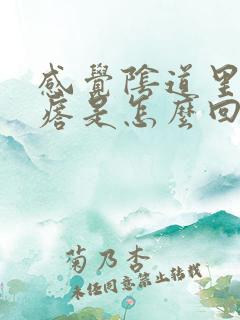 感覺陰道里
痞是怎麼回
菊乃杏
未經同意禁止轉載